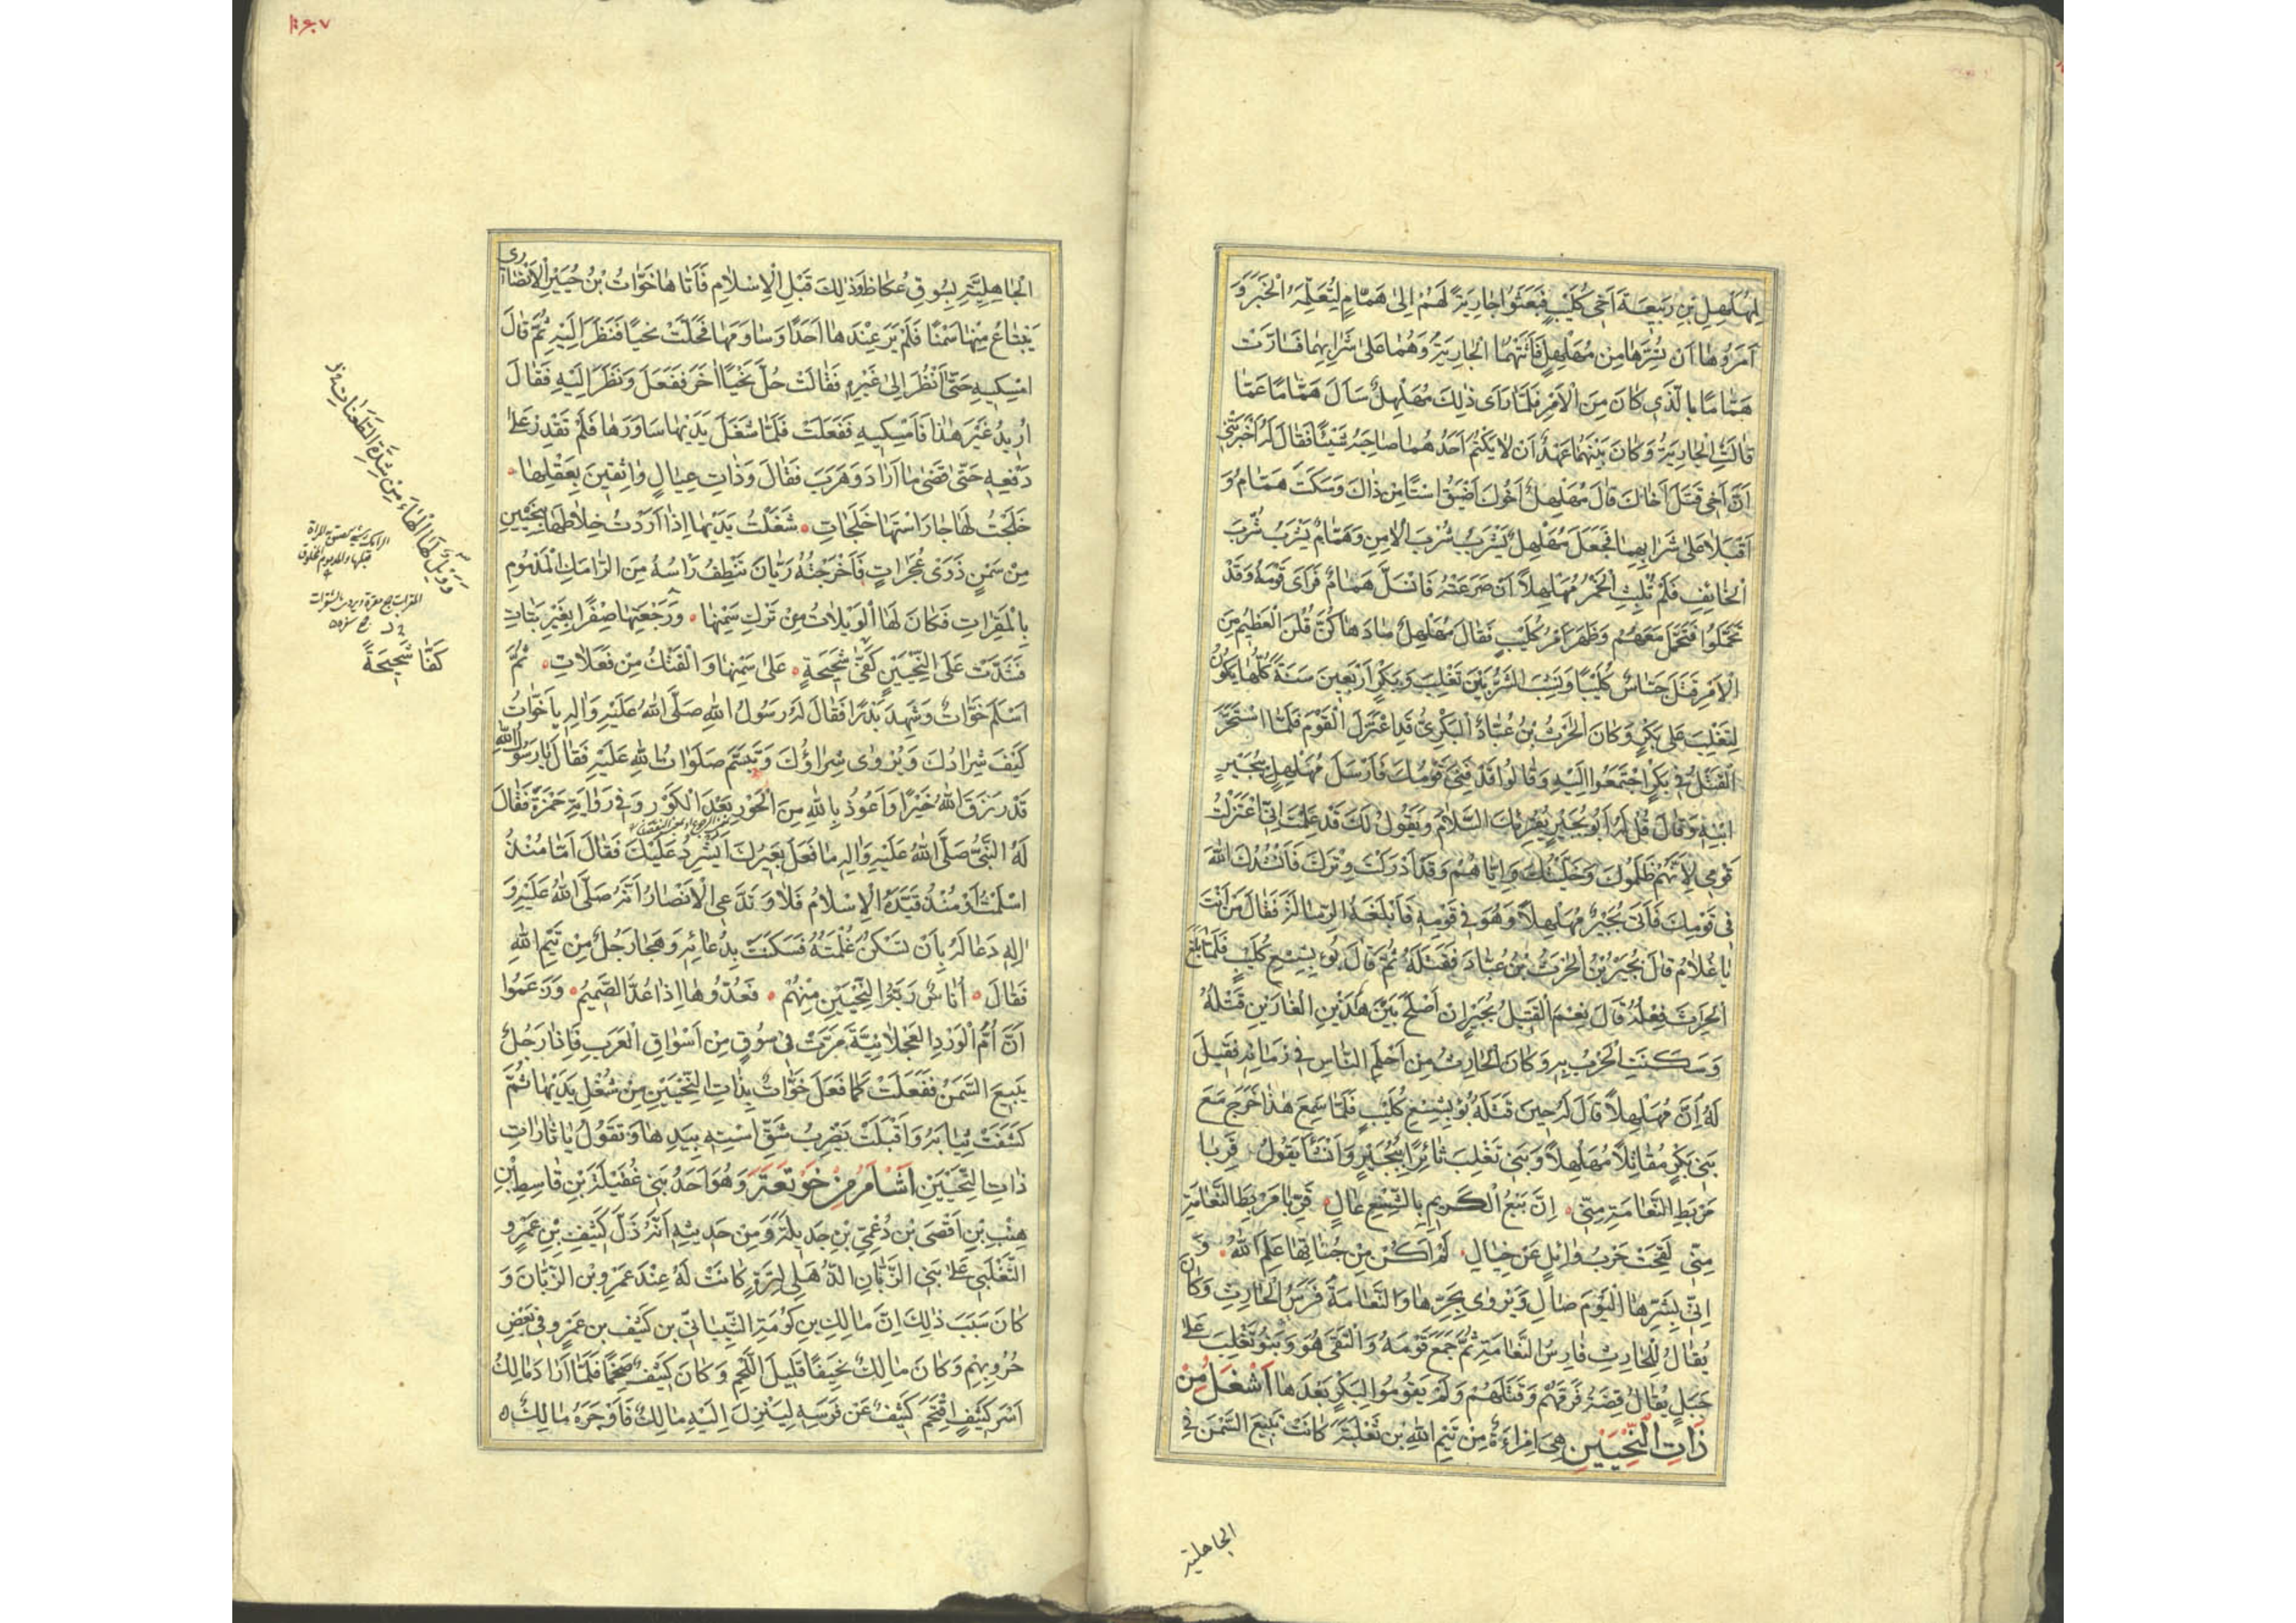 لِمُهَلْهِلِ بْنِ رَبِيعَةَ اَخِي كُلَيْبٍ فَبَعَثُوا جَارِيَةً لَهُمْ اِلىٰ هَمَّامٍ لِتُعْلِمَهُ الْخَبَرَ وَ
اَمَرُوهَا اَنْ تُسِرَّهَا مِنْ مُهَلْهِلٍ فَاَتَتْهُمَا الْجَارِيَةُ وَهُمَا عَلىٰ شَرَابِهِمَا فَسَارَّتْ
هَمَّامًا بِالَّذِي كَانَ مِنَ الْاَمْرِ فَلَمَّا رَاَى ذٰلِكَ مُهَلْهِلٌ سَاَلَ هَمَّامًا عَمَّا
قَالَتِ الْجَارِيَةُ وَكَانَ بَيْنَهُمَا عَهْدٌ اَنْ لَا يَكْتُمَ اَحَدُهُمَا صَاحِبَهُ شَيْئًا فَقَالَ لَهُ اَخْبَرَتْنِي
اَنَّ اَخِي قَتَلَ اَخَاكَ قَالَ مُهَلْهِلٌ اَخُوكَ اَضْيَقُ اسْتًا مِنْ ذَاكَ وَسَكَتَ هَمَّامٌ وَ
اَقْبَلَا عَلىٰ شَرَابِهِمَا فَجَعَلَ مُهَلْهِلٌ يَشْرَبُ شُرْبَ الْاٰمِنِ وَهَمَّامٌ يَشْرَبُ شُرْبَ
الْخَائِفِ فَلَمْ تَلْبَثِ الْخَمْرُ مُهَلْهِلًا اَنْ صَرَعَتْهُ فَانْسَلَّ هَمَّامٌ فَرَاَى قَوْمَهُ وَقَدْ
تَحَمَّلُوا فَتَحَمَّلَ مَعَهُمْ وَظَهَرَ اَمْرُ كُلَيْبٍ فَقَالَ مُهَلْهِلٌ مَا دَهَاكُنَّ قُلْنَ الْعَظِيمُ مِنَ
الْاَمْرِ قَتَلَ جَسَّاسٌ كُلَيْبًا وَنَشِبَ الشَّرُّ بَيْنَ تَغْلِبَ وَبَكْرٍ اَرْبَعِينَ سَنَةً كُلُّهَا يَكُونُ
لِتَغْلِبَ عَلىٰ بَكْرٍ وَكَانَ الْحٰرِثُ بْنُ عُبَادٍ الْبَكْرِيُّ قَدِ اعْتَزَلَ الْقَوْمَ فَلَمَّا اسْتَحَرَّ
الْقَتْلُ فِي بَكْرٍ اجْتَمَعُوا اِلَيْهِ وَقَالُوا قَدْ فَنِيَ قَوْمُكَ فَاَرْسَلَ مُهَلْهِلٍ بِبُجَيْرٍ
ابْنِهِ وَقَالَ قُلْ لَهُ اَبُو بُجَيْرٍ يُقْرِئُكَ السَّلَامَ وَيَقُولُ لَكَ قَدْ عَلِمْتَ اِنِّي اعْتَزَلْتُ
قَوْمِي لِاَنَّهُمْ ظَلَمُوكَ وَخَلَّيْتُكَ وَاِيَّاهُمْ وَقَدْ اَدْرَكْتَ وِتْرَكَ فَاَنْشُدُكَ اللّٰهَ
فِي قَوْمِكَ فَاَتىٰ بُجَيْرٌ مُهَلْهِلًا وَهُوَ فِي قَوْمِهِ فَاَبْلَغَهُ الرِّسَالَةَ فَقَالَ مَنْ اَنْتَ
يَا غُلَامُ قَالَ بُجَيْرُ بْنُ الْحٰرِثِ بْنِ عُبَادٍ فَقَتَلَهُ ثُمَّ قَالَ بُؤْ بِشِسْعِ كُلَيْبٍ فَلَمَّا بَلَغَ
الْحٰرِثَ فِعْلُهُ قَالَ نِعْمَ الْقَتِيلُ بُجَيْرٌ اِنْ اَصْلَحَ بَيْنَ هٰذَيْنِ الْغَارَيْنِ قَتْلُهُ
وَسَكَنَتِ الْحَرْبُ بِهِ وَكَانَ الْحَارِثُ مِنْ اَحْلَمِ النَّاسِ فِي زَمَانِهِ فَقِيلَ
لَهُ اِنَّ مُهَلْهِلًا قَالَ لَهُ حِينَ قَتَلَهُ بُؤْ بِشِسْعِ كُلَيْبٍ فَلَمَّا سَمِعَ هٰذَا خَرَجَ مَعَ
بَنِي بَكْرٍ مُقَاتِلًا مُهَلْهِلًا وَبَنِي تَغْلِبَ ثَائِرًا بِبُجَيْرٍ وَاَنْشَاَ يَقُولُ قَرِّبَا
مَرْبَطَ النَّعَامَةِ مِنِّي اِنَّ بَيْعَ الْكَرِيمِ بِالشِّسْعِ غَالٍ قَرِّبَا مَرْبِطَ النَّعَامَةِ
مِنِّي لَقِحَتْ حَرْبُ وَائِلٍ عَنْ حِيَالِ لَمْ اَكُنْ مِنْ جُنَاتِهَا عَلِمَ اللّٰهُ وَ
اِنِّي بِشَرِّهَا الْيَوْمَ صَالِ وَيُرْوٰى بِحَرِّهَا وَالنَّعَامَةُ فَرَسُ الْحَارِثِ وَكَانَ
يُقَالُ لِلْحَارِثِ فَارِسُ النَّعَامَةِ ثُمَّ جَمَعَ قَوْمَهُ وَالْتَقىٰ هُوَ وَبَنُو تَغْلِبَ عَلىٰ
جَبَلٍ يُقَالُ قِضَةُ فَرَّقَهُمْ وَقَتَلَهُمْ وَلَمْ يَقُومُوا لِبَكْرٍ بَعْدَهَا اَشْغَلُ مِنْ
ذَاتِ النِّحْيَيْنِ هِيَ امْرَءَةٌ مِنْ تَيْمِ اللّٰهِ بْنِ ثَعْلَبَةَ كَانَتْ تَبِيعُ السَّمْنَ فِي
الجاهلية
الْجَاهِلِيَّةِ بِسُوقِ عُكَاظَ وَذٰلِكَ قَبْلِ الْاِسْلَامِ فَاَتَاهَا خَوَّاتُ بْنُ جُبَيْرٍ الْاَنْصَارِي
يَبْتَاعُ مِنْهَا سَمْنًا فَلَمْ يَرَ عِنْدَهَا اَحَدًا وَسَاوَمَهَا فَحَلَّتْ نِحْيًا فَنَظَرَ اِلَيْهِ ثُمَّ قَالَ
امْسِكِيهِ حَتّٰى اَنْظُرَ اِلىٰ غَيْرِهِ فَقَالَتْ حُلَّ نِحْيًا اٰخَرَ فَفَعَلَ وَنَظَرَ اِلَيْهِ فَقَالَ
اُرِيدُ غَيْرَ هٰذَا فَاَمْسِكِيهِ فَفَعَلَتْ فَلَمَّا شَغَلَ يَدَيْهَا سَاوَرَهَا فَلَمْ تَقْدِرْ عَلىٰ
دَفْعِهِ حَتّٰى قَضىٰ مَا اَرَادَ وَهَرَبَ فَقَالَ وَذَاتِ عِيَالٍ وَاثِقِينَ بِعَقْلِهَا
خَلَجْتُ لَهَا جَارَ اسْتِهَا خَلَجَاتِ شَغَلْتُ يَدَيْهَا اِذْ اَرَدْتُ خِلَاطَهَا بِنِحْيَيْنِ
مِنْ سَمْنٍ ذَوَىْ عُجَرَاتٍ فَاَخْرَجْتُهُ رَيَّانَ يَنْطِفُ رَاْسُهُ مِنَ الرَّامِكِ الْمَدْمُومِ
بِالْمَقِرَاتِ فَكَانَ لَهَا الْوَيْلَاتُ مِنْ تَرْكِ سَمْنِهَا وَرَجْعَتِهَا صِفْرًا بِغَيْرِ بَتَاتِ
فَشَدَّتْ عَلَى النِّحْيَيْنِ كَفَّىْ شَحِيحَةٍ عَلىٰ سَمْنِهَا وَالْفَتْكُ مِنْ فَعَلَاتِ ثُمَّ
اَسْلَمَ خَوَّاتٌ وَشَهِدَ بَدْرًا فَقَالَ لَهُ رَسُولُ اللّٰهِ صَلَّى اللّٰهُ عَلَيْهِ وَاٰلِهِ يَا خَوَّاتُ
كَيْفَ شِرَادُكَ وَيُرْوٰى شِرَاؤُكَ وَتَبَسَّمَ صَلَوَاتُ اللّٰهِ عَلَيْهِ فَقَالَ يَا رَسُولَ اللّٰهِ
قَدْ رَزَقَ اللّٰهُ خَيْرًا وَاَعُوذُ بِاللّٰهِ مِنَ الْحَوْرِ بَعْدَ الْكَوْرِ وَفِي رَوَايَةِ حَمْزَةَ فَقَالَ
لَهُ النَّبِيُّ صَلَّى اللّٰهُ عَلَيْهِ وَاٰلِهِ مَا فَعَلَ بَعِيرُكَ اَيَشْرِدُ عَلَيْكَ فَقَالَ اَمَّا مُنْذُ
اَسْلَمْتُ اَوْ مُنْذُ قَيَّدَهُ الْاِسْلَامُ فَلَا وَتَدَّعِي الْاَنْصَارُ اَنَّهُ صَلَّى اللّٰهُ عَلَيْهِ وَ
اٰلِهِ دَعَا لَهُ بِاَنْ تَسْكُنَ غُلْمَتُهُ فَسَكَنَتْ بِدُعَائِهِ وَهَجَا رَجُلٌ مِنْ تَيْمِ اللّٰهِ
فَقَالَ اُنَاسٌ رَبَّةُ النِّحْيَيْنِ مِنْهُمْ فَعُدُّوهَا اِذَا عُدَّ الصَّمِيمُ وَزَعَمُوا
اَنَّ اُمَّ الْوَرْدِ الْعَجْلَانِيَّةَ مَرَّتْ فِي سُوقٍ مِنْ اَسْوَاقِ الْعَرَبِ فَاِذَا رَجُلٌ
يَبِيعُ السَّمَنَ فَفَعَلَتْ كَمَا فَعَلَ خَوَّاتٌ بِذَاتِ النِّحْيَيْنِ مِنْ شُغْلِ يَدَيْهَا ثُمَّ
كَشَفَتْ ثِيَابَهُ وَاَقْبَلَتْ تَضْرِبُ شَقَّ اسْتِهِ بِيَدِهَا وَتَقُولُ يَا ثَارَاتِ
ذَاتِ النِّحْيَيْنِ اَشْاَمُ مِنْ خَوْتَعَةَ وَهُوَ اَحَدُ بَنِي غُفَيْلَةَ بْنِ قَاسِطِ بْنِ
هِنْبِ بْنِ اَفْصىٰ بْنِ دُعْمِيِّ بْنِ جَدِيلَةَ وَمِنْ حَدِيثِهِ اَنَّهُ دَلَّ كَثِيفَ بْنَ عَمْرٍو
التَّغْلَبِيَّ عَلىٰ بَنِي الزَّبَّانِ الذُّهَلِي لِتِرَةٍ كَانَتْ لَهُ عِنْدَ عَمْرِو بْنِ الزَّبَّانَ وَ
كَانَ سَبَبَ ذٰلِكَ اِنَّ مَالِكِ بْنِ كَوْمَةَ الشَّيْبَانِيَّ بن كَثِيف بن عَمْرٍو فِي بَعْضِ
حُرُوبِهِمْ وَكَانَ مَالِكٌ نَحِيفًا قَلِيلَ الَّحْمِ وَكَانَ كَثِيفٌ ضَخْمًا فَلَمَّا اَرَادَ مَالِكٌ
اَسْرَ كَثِيفٍ اقْتَحَمَ كَثِيفٌ عَنْ فَرَسِهِ لِيَنْزِلَ اِلَيْهِ مَالِكٌ فَاَوْجَرَهُ مَالِكٌ
وَوَيْلٌ لَهَا مِنْ شِدَّةِ الطَّعَنَاتِ
كَفًّا شَحِيحَةً